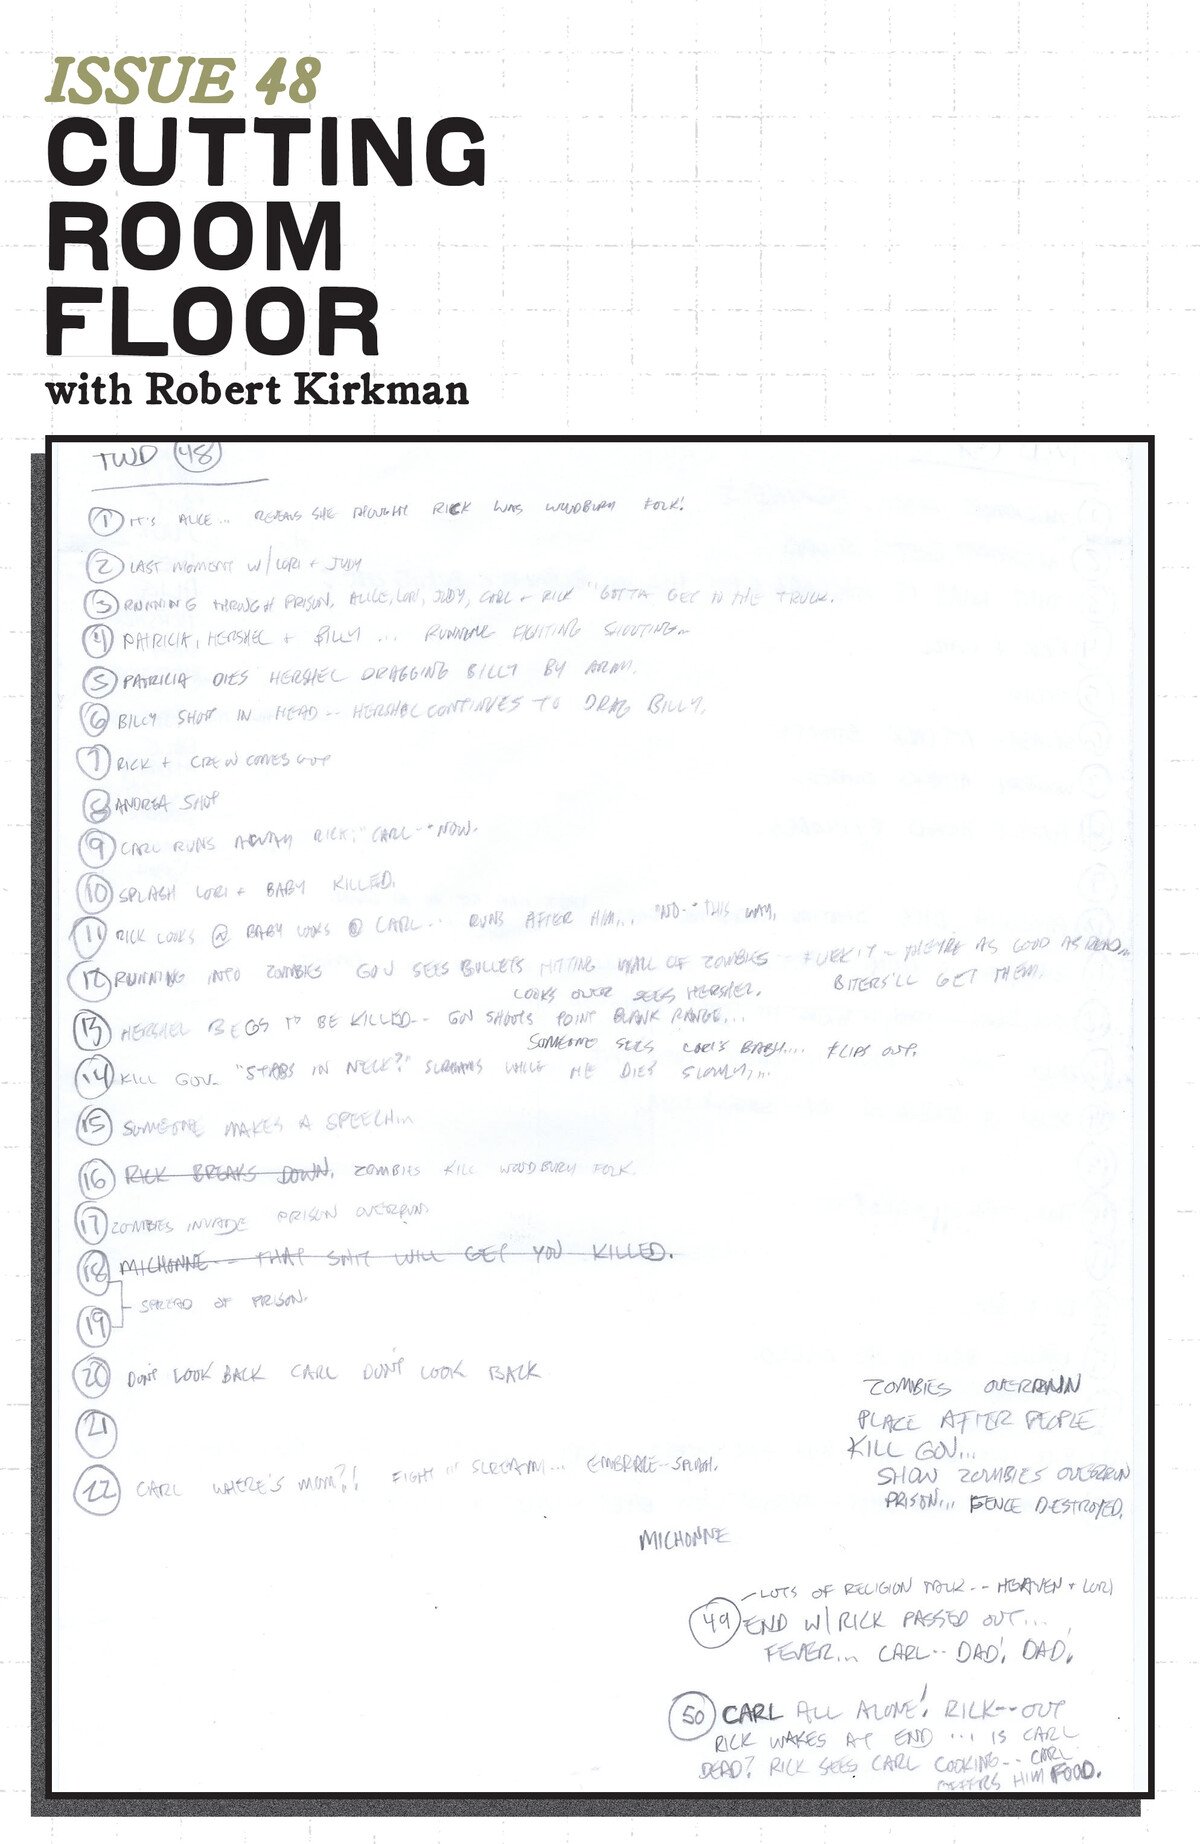 ISSUE 48
CUTTING
ROOM
FLOOR
with Robert Kirkman
TWD 48
1 IT'S ALICE... REVEALS SHE THOUGHT RICK WAS WOODBURY FOLK!
2 LAST MOMENT W/ LORI + JUDY
3 RUNNING THROUGH PRISON, ALICE, LORI, JUDY, CARL + RICK "GOTTA GET TO THE TRUCK.
4 PATRICIA, HERSHEL + BILLY ... RUNNING FIGHTING SHOOTING...
5 PATRICIA DIES HERSHEL DRAGGING BILLY BY ARM.
6 BILLY SHOT IN HEAD-- HERSHEL CONTINUES TO DRAG BILLY.
7 RICK + CREW COMES OUT
8 ANDREA SHOT
9 CARL RUNS AWAY RICK: "CARL--" NOW.
10 SPLASH LORI + BABY KILLED.
11 RICK LOOKS @ BABY LOOKS @ CARL... RUNS AFTER HIM... "NO--" THIS WAY.
12 RUNNING INTO ZOMBIES GOV SEES BULLETS HITTING WALL OF ZOMBIES -- FUCK IT -- THEY'RE AS GOOD AS DEAD...
LOOKS OVER SEES HERSHEL. BITERS'LL GET THEM.
13 HERSHEL BEGS TO BE KILLED-- GOV SHOOTS POINT BLANK RANGE...
SOMEONE SEES LORI'S BABY.... FLIPS OUT.
14 KILL GOV- "STABS IN NECK?" SCREAMS WHILE HE DIES SLOWLY...
15 SOMEONE MAKES A SPEECH...
16 RICK BREAKS DOWN. ZOMBIES KILL WOODBURY FOLK.
17 ZOMBIES INVADE PRISON OVERRUN
18 MICHONNE -- THAT SHIT WILL GET YOU KILLED.
SPREAD OF PRISON.
19
20 DON'T LOOK BACK CARL DON'T LOOK BACK
21
22 CARL WHERE'S MOM?! FIGHT SCREAM... EMBRACE--SPLASH.
ZOMBIES OVERRUN
PLACE AFTER PEOPLE
KILL GOV...
SHOW ZOMBIES OVERRUN
PRISON... FENCE DESTROYED.
MICHONNE
LOTS OF RELIGION TALK -- HEAVEN + LORI
49 END W/ RICK PASSED OUT...
FEVER... CARL-- DAD! DAD!
50 CARL ALL ALONE! RICK--OUT
RICK WAKES AT END ... IS CARL
DEAD? RICK SEES CARL COOKING-- CARL
OFFERS HIM FOOD.